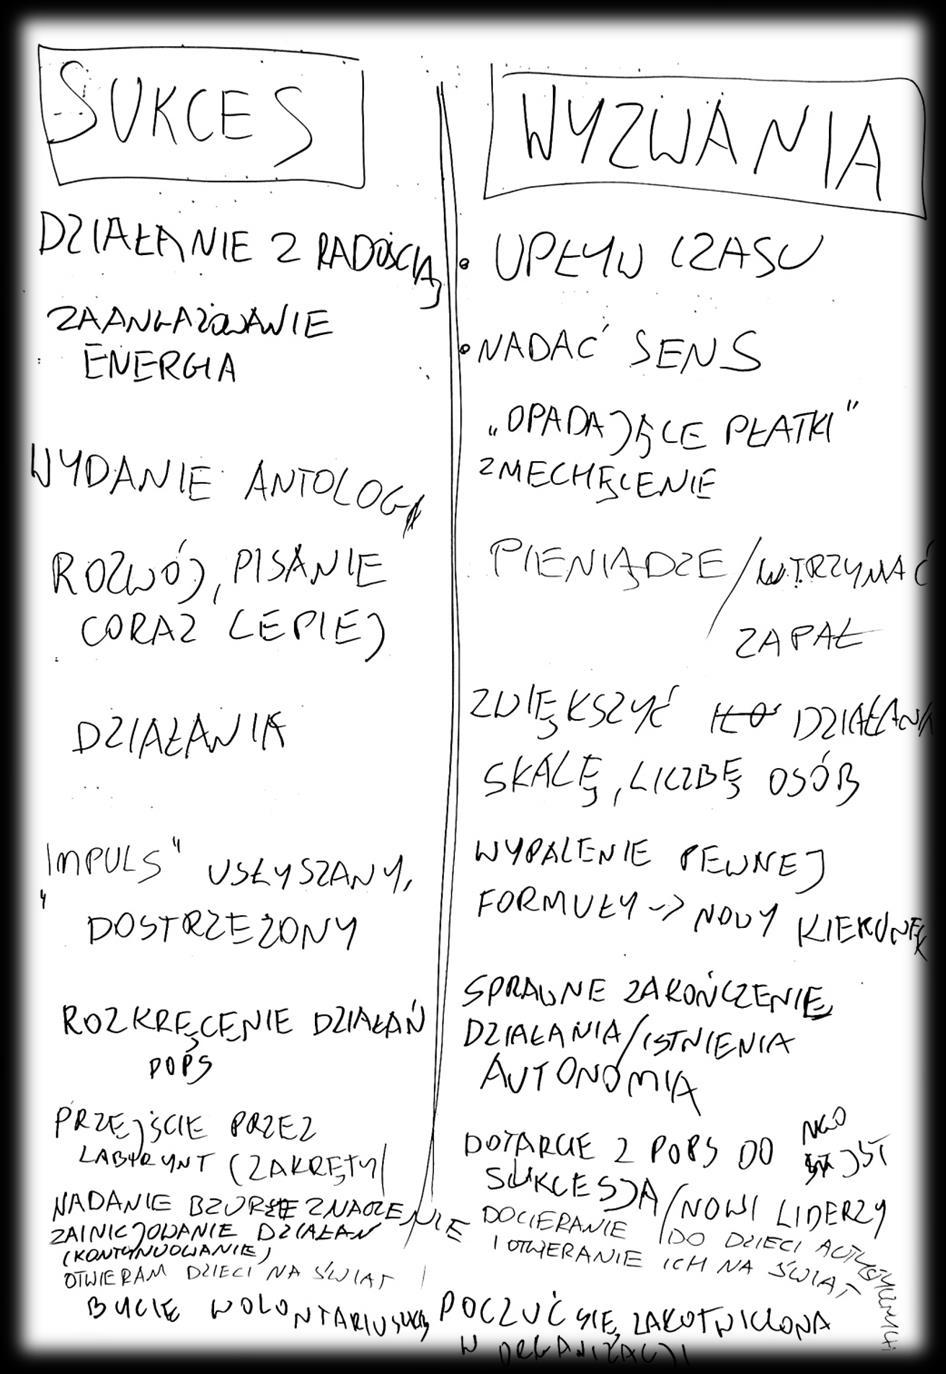 SUKCES
DZIAŁANIE Z RADOŚCIĄ
ZAANGAŻOWANIE
ENERGIA
WYDANIE ANTOLOGII
ROZWÓJ, PISANIE
CORAZ LEPIEJ
DZIAŁANIA
"IMPULS" USŁYSZANY,
DOSTRZEŻONY
ROZKRĘCENIE DZIAŁAŃ
POPS
PRZEJŚCIE PRZEZ
LABIRYNT (ZAKRĘTY)
NADANIE BZURZE ZNACZENIE
ZAINICJOWANIE DZIAŁAŃ
(KONTYNUOWANIE)
OTWIERAM DZIECI NA ŚWIAT
BYCIE WOLONTARIUSZKĄ
WYZWANIA
• UPŁYW CZASU
• NADAĆ SENS
„OPADAJĄCE PŁATKI"
ZNIECHĘCENIE
PIENIĄDZE / UTRZYMAĆ
ZAPAŁ
ZWIĘKSZYĆ DZIAŁANIA
SKALĘ, LICZBĘ OSÓB
WYPALENIE PEWNEJ
FORMUŁY -> NOWY KIERUNEK
SPRAWNE ZAKOŃCZENIE
DZIAŁANIA/ISTNIENIA
AUTONOMIA
DOTARCIE Z POPS DO NGO
JST
SUKCESJA/NOWI LIDERZY
DOCIERANIE DO DZIECI AUTYSTYCZNYCH
I OTWIERANIE ICH NA ŚWIAT
POCZUĆ SIĘ ZAKOTWICZONA
W ORGANIZACJI